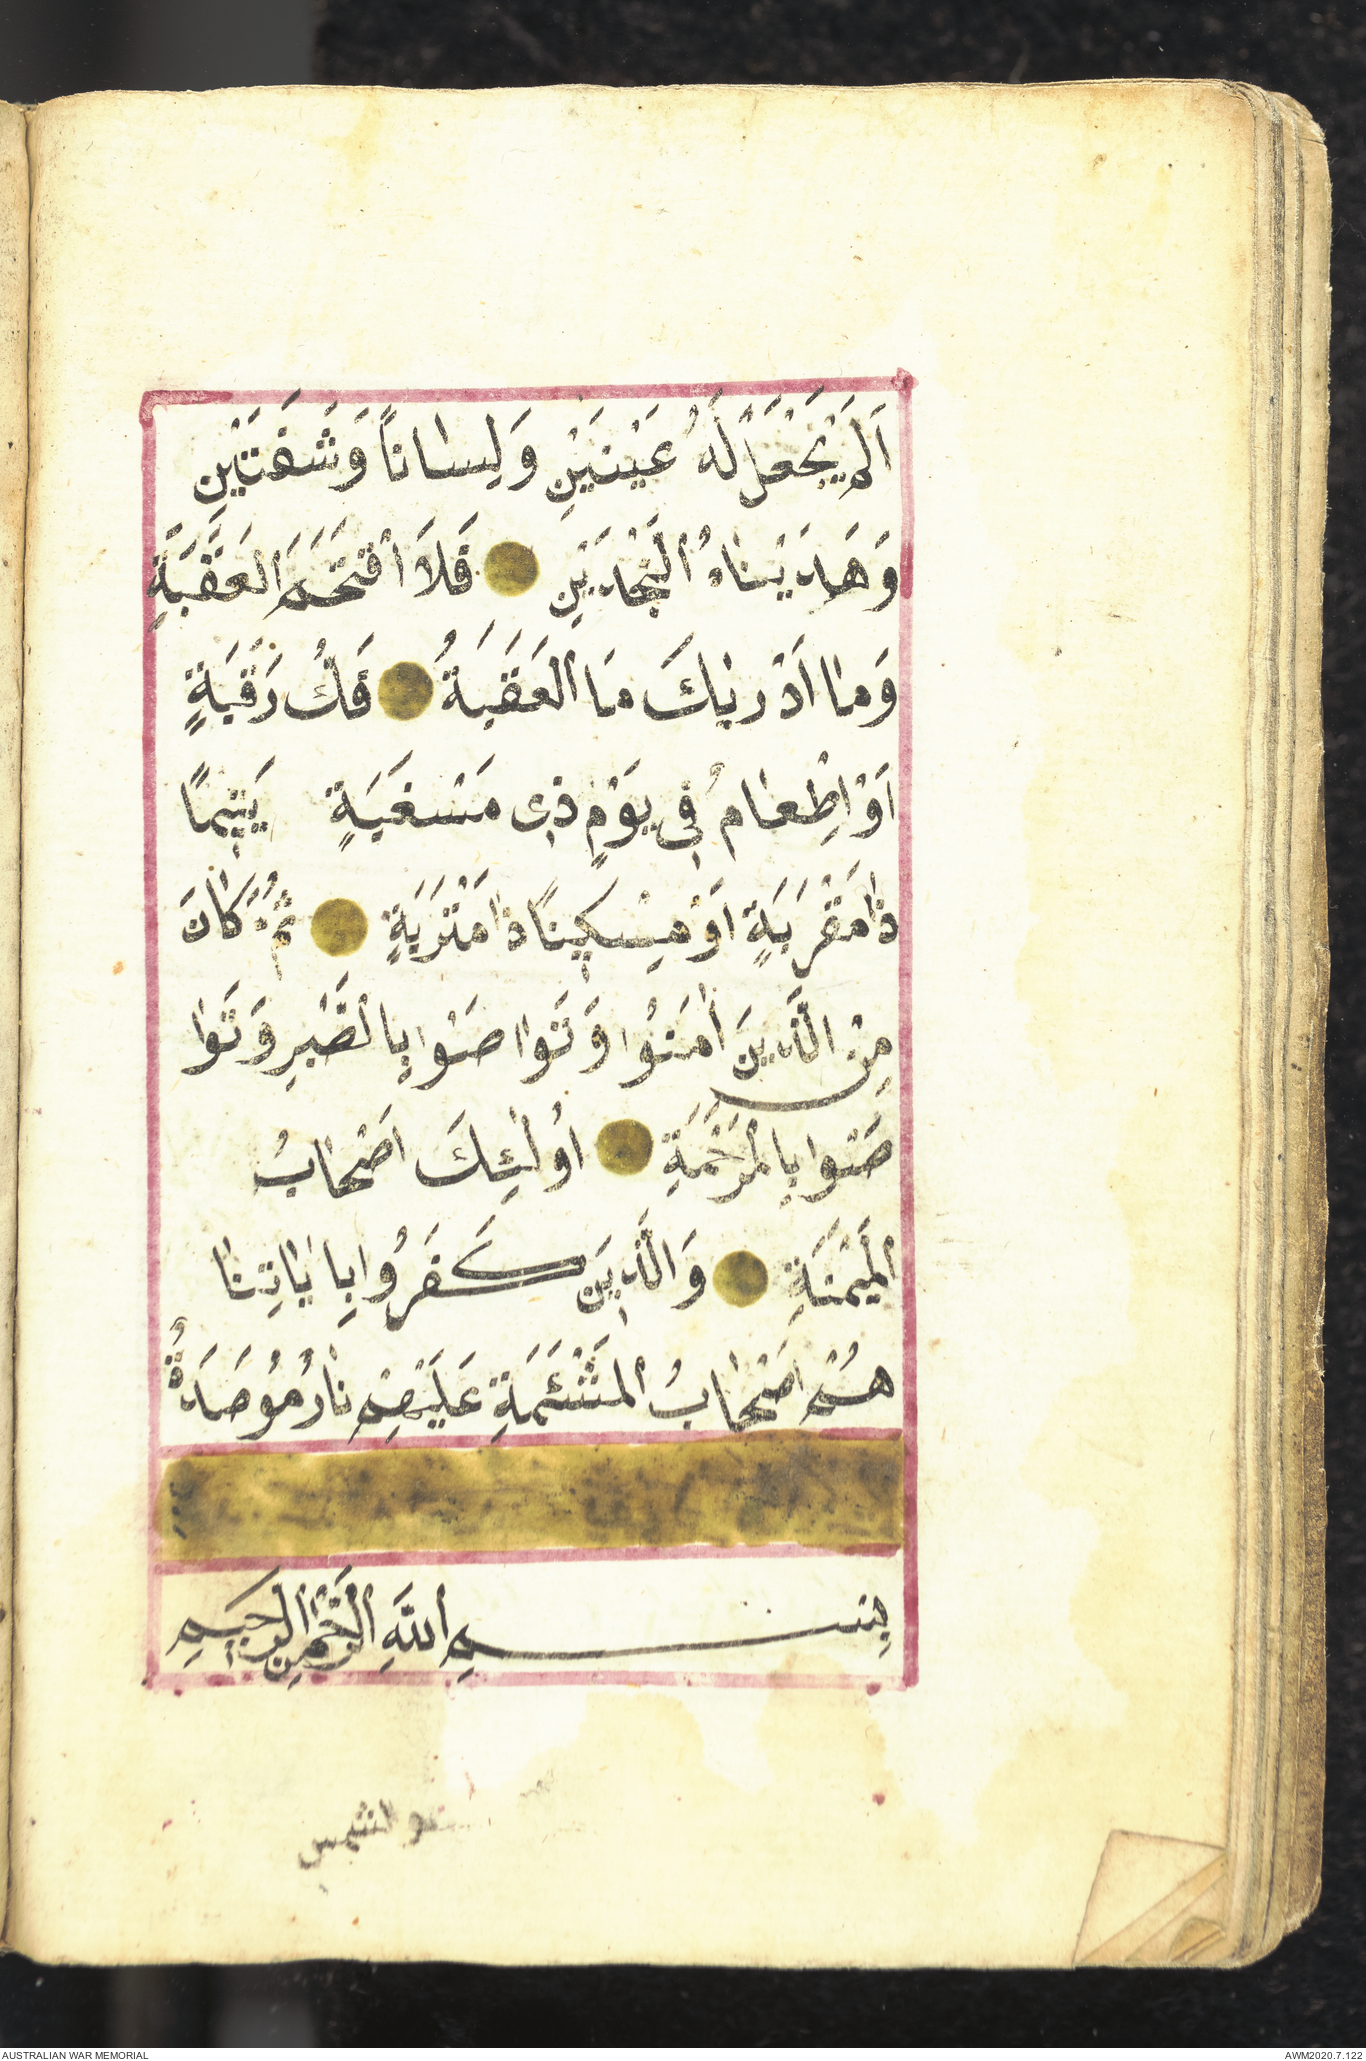 اَلَمْ يَجْعَلْ لَهُ عَيْنَيْنِ وَلِسَاناً وَشَفَتَيْنِ
وَهَدَيْنَاهُ النَّجْدَيْنِ فَلَا اقْتَحَمَ الْعَقَبَةَ
وَمَا اَدْرٰيكَ مَا الْعَقَبَةُ فَكُّ رَقَبَةٍ
اَوْ اِطْعَامُ فِى يَوْمٍ ذِى مَسْغَبَةٍ يَتِيمًا
ذَا مَقْرَبَةٍ اَوْ مِسْكِينًا ذَا مَتْرَبَةٍ ثُمَّ كَانَ
مِنَ الَّذِينَ اٰمَنُوا وَتَوَاصَوْا بِالصَّبْرِ وَتَوَا
صَوْا بِالْمَرْحَمَةِ اُولٰئِكَ اَصْحَابُ
الْمَيْمَنَةِ وَالَّذِينَ كَفَرُوا بِاٰيَاتِنَا
هُمْ اَصْحَابُ الْمَشْئَمَةِ عَلَيْهِمْ نَارٌ مُوصَدَةٌ
بِسْمِ اللّٰهِ الرَّحْمٰنِ الرَّحِيمِ
والشمس
AUSTRALIAN WAR MEMORIAL AWM2020.7.122